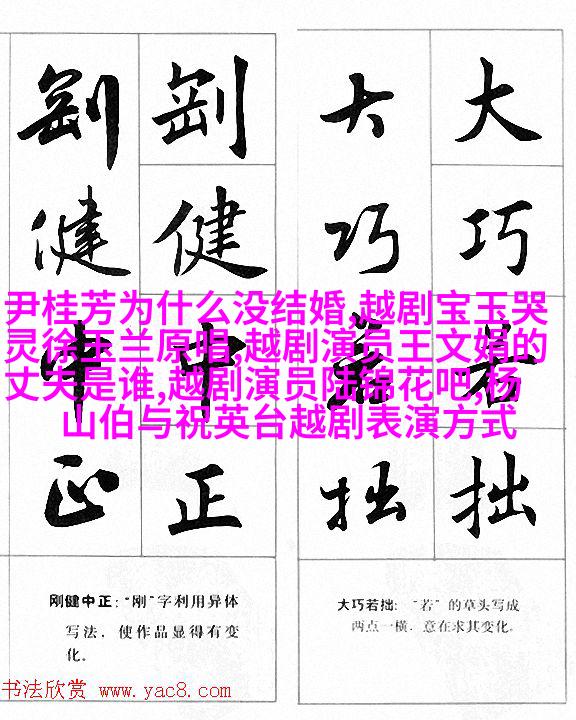 剛健中正
剛健中正
大巧若拙
大巧若拙
尹桂芳为什么没结婚,越剧宝玉哭
灵徐玉兰原唱,越剧演员王文娟的
丈夫是谁,越剧演员陆锦花吧,杨
山伯与祝英台越剧表演方式
刚健中正：“刚”字利用异体
写法，使作品显得有变
化。
大巧若拙：“若”的草头写成
两点一横，意在求其变化。
书法欣赏 www.yac8.com